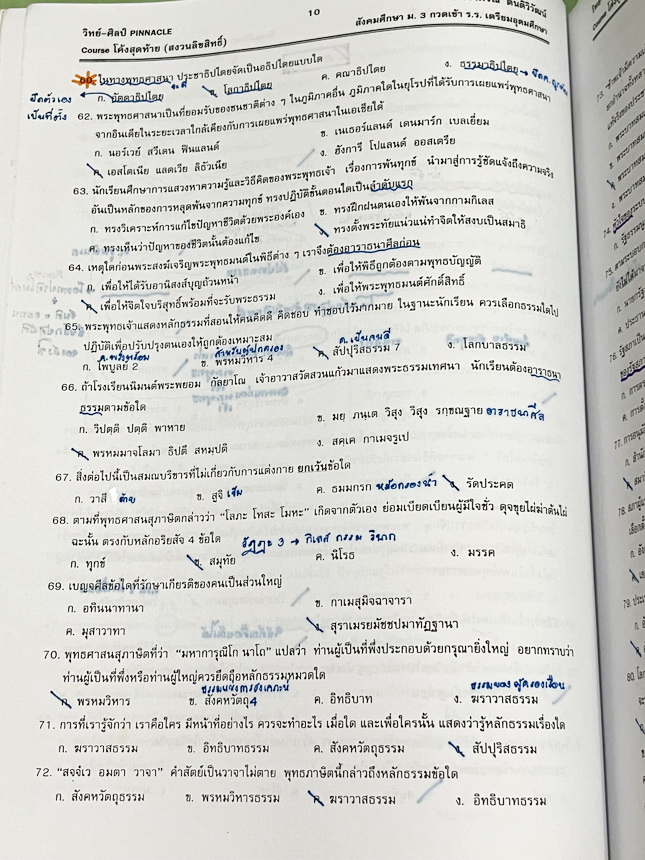 วิทย์-ศิลป์ PINNACLE
Course โค้งสุดท้าย (สงวนลิขสิทธิ์)
10
สังคมศึกษา ม. 3 กวดเข้า ร.ร. เตรียมอุดมศึกษา
ในทางพุทธศาสนา ประชาธิปไตยจัดเป็นอธิปไตยแบบใด
ก. อัตตาธิปไตย ข. โลกาธิปไตย ค. คณาธิปไตย ง. ธรรมาธิปไตย
ยึดตัวเอง
เป็นที่ตั้ง
62. พระพุทธศาสนาเป็นที่ยอมรับของชนชาติต่าง ๆ ในภูมิภาคอื่น ภูมิภาคใดในยุโรปที่ได้รับการเผยแพร่พุทธศาสนา
จากอินเดียในระยะเวลาใกล้เคียงกับการเผยแพร่พุทธศาสนาในเอเชียใต้
ก. นอร์เวย์ สวีเดน ฟินแลนด์ ข. เนเธอร์แลนด์ เดนมาร์ก เบลเยี่ยม
ค. เอสโตเนีย แลตเวีย ลิธัวเนีย ง. ฮังการี โปแลนด์ ออสเตรีย
63. นักเรียนศึกษาการแสวงหาความรู้และวิธีคิดของพระพุทธเจ้า เรื่องการพ้นทุกข์ นำมาสู่การรู้ชัดแจ้งถึงความจริง
อันเป็นหลักของการหลุดพ้นจากความทุกข์ ทรงปฏิบัติขั้นตอนใดเป็นลำดับแรก
ก. ทรงวิเคราะห์การแก้ไขปัญหาชีวิตด้วยพระองค์เอง ข. ทรงฝึกฝนตนเองให้พ้นจากกามกิเลส
ค. ทรงเห็นว่าปัญหาของชีวิตนั้นต้องแก้ไข ง. ทรงตั้งพระทัยแน่วแน่ทำจิตให้สงบเป็นสมาธิ
64. เหตุใดก่อนพระสงฆ์เจริญพระพุทธมนต์ในพิธีต่าง ๆ เราจึงต้องอาราธนาศีลก่อน
ก. เพื่อให้ได้รับอานิสงส์บุญถ้วนหน้า ข. เพื่อให้พิธีถูกต้องตามพุทธบัญญัติ
ค. เพื่อให้จิตใจบริสุทธิ์พร้อมที่จะรับพระธรรม ง. เพื่อให้พระพุทธมนต์ศักดิ์สิทธิ์
65. พระพุทธเจ้าแสดงหลักธรรมที่สอนให้คนคิดดี คิดชอบ ทำชอบไว้มากมาย ในฐานะนักเรียน ควรเลือกธรรมใดไป
ปฏิบัติเพื่อปรับปรุงตนเองให้ถูกต้องเหมาะสม
สำหรับผู้ปกครอง ค.เป็นคนดี
ก. ไพบูลย์ 2 ข. พรหมวิหาร 4 ค. สัปปุริสธรรม 7 ง. โลกบาลธรรม
66. ถ้าโรงเรียนนิมนต์พระพยอม กัลยาโณ เจ้าอาวาสวัดสวนแก้วมาแสดงพระธรรมเทศนา นักเรียนต้องอาราธนา
ธรรมตามข้อใด
ก. วิปตฺติ ปตฺติ พาหาย ข. มยฺ ภนฺเต วิสุง วิสุง รกฺขณฺฐาย อาราธนาศีล
ค. พรหมมาจโลมา ธิปตี สหมฺปติ ง. สคฺเค กาเมจรูเป
67. สิ่งต่อไปนี้เป็นสมณบริขารที่ไม่เกี่ยวกับการแต่งกาย ยกเว้นข้อใด
ก. วาสี ข. สูจิ เข็ม ค. ธมมกรก หม้อกรองน้ำ ง. รัดประคด
68. ตามที่พุทธศาสนสุภาษิตกล่าวว่า “โลภะ โทสะ โมหะ” เกิดจากตัวเอง ย่อมเบียดเบียนผู้มีใจชั่ว ดุจขุยไผ่ฆ่าต้นไผ่
ฉะนั้น ตรงกับหลักอริยสัจ 4 ข้อใด วัฏฏะ 3 → กิเลส กรรม วิบาก
ก. ทุกข์ ข. สมุทัย ค. นิโรธ ง. มรรค
69. เบญจศีลข้อใดที่รักษาเกียรติของคนเป็นส่วนใหญ่
ก. อทินนาทานา ข. กาเมสุมิจฉาจารา
ค. มุสาวาทา ง. สุราเมรยมัชชปมาทัฏฐานา
70. พุทธศาสนสุภาษิตที่ว่า “มหาการุณิโก นาโถ” แปลว่า ท่านผู้เป็นที่พึ่งประกอบด้วยกรุณายิ่งใหญ่ อยากทราบว่า
ท่านผู้เป็นที่พึ่งหรือท่านผู้ใหญ่ควรยึดถือหลักธรรมหมวดใด
ธรรมแห่งการสงเคราะห์ ธรรมของผู้ครองเรือน
ก. พรหมวิหาร ข. สังคหวัตถุ4 ค. อิทธิบาท ง. ฆราวาสธรรม
71. การที่เรารู้จักว่า เราคือใคร มีหน้าที่อย่างไร ควรจะทำอะไร เมื่อใด และเพื่อใครนั้น แสดงว่ารู้หลักธรรมเรื่องใด
ก. ฆราวาสธรรม ข. อิทธิบาทธรรม ค. สังคหวัตถุธรรม ง. สัปปุริสธรรม
72. “สจฺจํเว อมตา วาจา” คำสัตย์เป็นวาจาไม่ตาย พุทธภาษิตนี้กล่าวถึงหลักธรรมข้อใด
ก. สังคหวัตถุธรรม ข. พรหมวิหารธรรม ค. ฆราวาสธรรม ง. อิทธิบาทธรรม